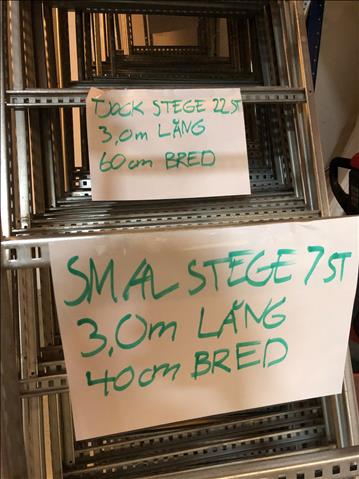 TJOCK STEGE 22 ST
3,0m LÅNG
60cm BRED
SMAL STEGE 7 ST
3,0m LÅNG
40cm BRED